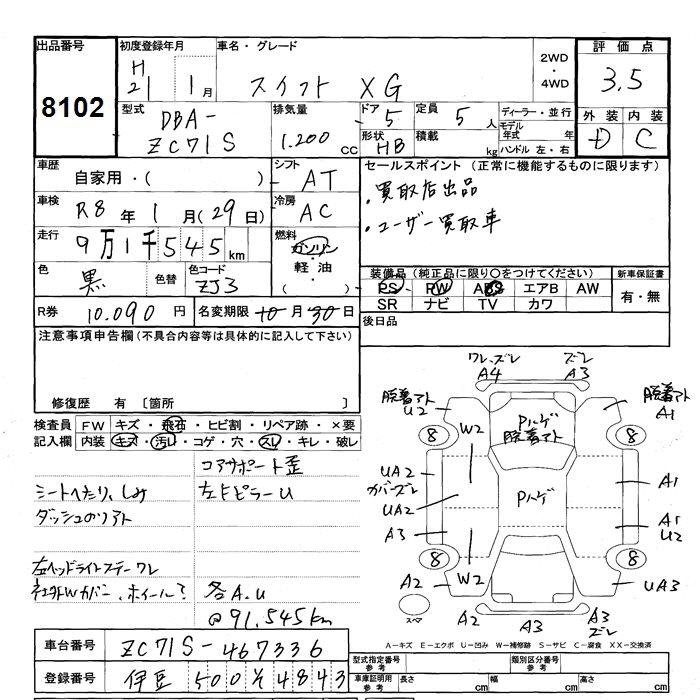 出品番号
8102
初度登録年月
H21 1月
車名・グレード
スイフト XG
2WD・4WD
評価点
3.5
型式
DBA-
ZC71S
排気量
1.200 cc
ドア 5
形状 HB
定員 5 人
積載 kg
ディーラー・並行
モデル年式 年
ハンドル 左・右
外装 内装
D C
車歴
自家用・( )
シフト
AT
セールスポイント(正常に機能するものに限ります)
・買取店出品
・ユーザー買取車
車検
R8年1月(29日)
冷房
AC
走行
9万1千545km
燃料
ガソリン
軽油
( )
色
黒
色替
色コード
ZJ3
装備品(純正品に限り○をつけてください)
PS PW ABS エアB AW
SR ナビ TV カワ
新車保証書
有・無
R券
10.090円
名変期限 10月30日
後日品
注意事項申告欄(不具合内容等は具体的に記入して下さい)
修復歴 有 〔箇所 〕
検査員記入欄
FW キズ・飛石・ヒビ割・リペア跡・×要
内装 キズ・汚レ・コゲ・穴・スレ・キレ・破レ
コアサポート歪
シートへたり、しみ
左FピラーU
ダッシュのリアト
左ヘッドライトステーワレ
社外Wカバー、ホイール?
各A.U
@91.545km
ワレ、ズレ
A4
ズレ
A3
脱着アト
U2
脱着アト
A1
Pハゲ
脱着アト
8
8
W2
UA2
カバーズレ
UA2
A3
Pハゲ
A1
A1
U2
8
8
W2
A2
UA3
スペア
A2
A3
A3
ズレ
A-キズ E-エクボ U-凹み W-補修跡 S-サビ C-腐食 XX-交換済
車台番号
ZC71S-467336
登録番号
伊豆 500 そ 4843
型式指定番号
参考
類別区分番号
参考
車庫証明用
参考
長さ cm
幅 cm
高さ cm